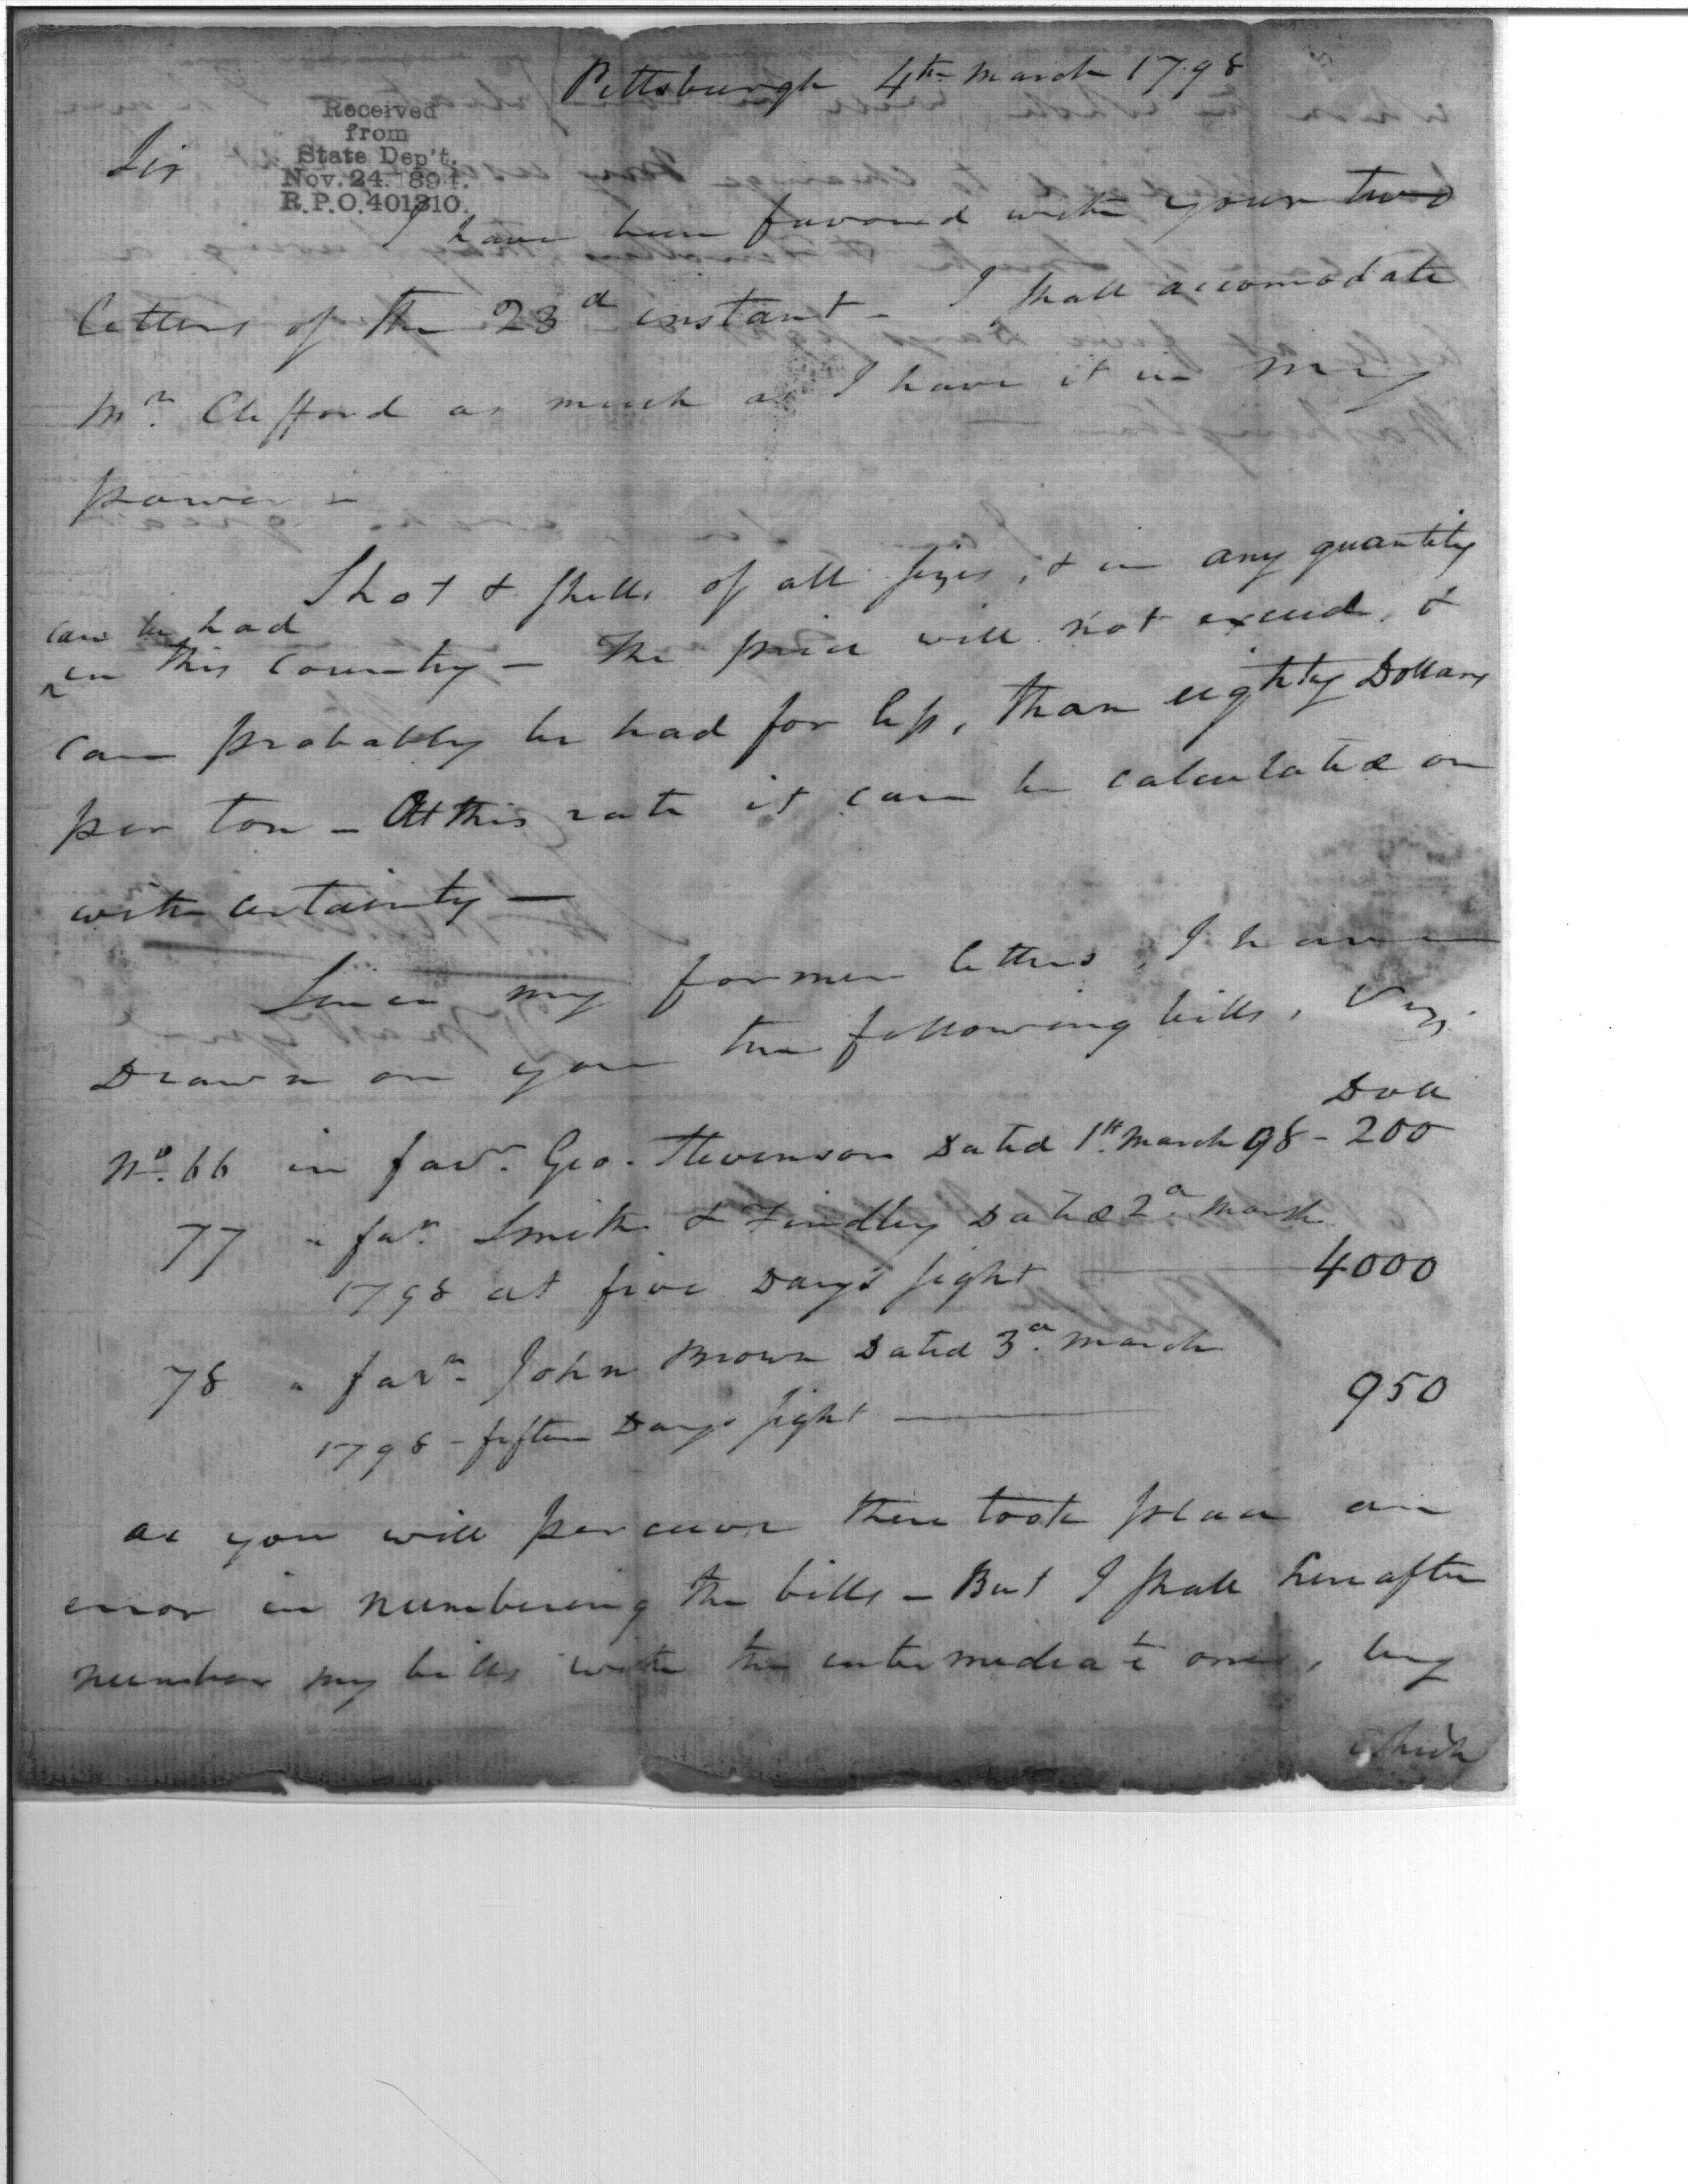 Pittsburgh 4th March 1798
Received
from
State Dep't.
Nov. 24. 1894.
R.P.O. 401310.
Sir
I have been favored with your two
letters of the 23d instant - I shall accomodate
Mr. Clifford as much as I have it in my
power -
Shot & shells of all sizes, & in any quantity
can be had
^ in this country - the price will not exceed, &
can probably be had for less, than eighty Dollars
per ton - At this rate it can be calculated on
with certainty -
Since my former letters, I have
Drawn on you the following bills, Viz.
Doll
No. 66 in favr. Geo. Stevenson Dated 1st. March 98 - 200
77 " favr. Smith & Findley Dated 2d. March
1798 at five Days sight 4000
78 " favr. John Brown Dated 3d. March
1798 - fifteen Days sight 950
as you will perceive there took place an
error in numbering the bills - But I shall hereafter
number my bills with the intermediate ones, by
which